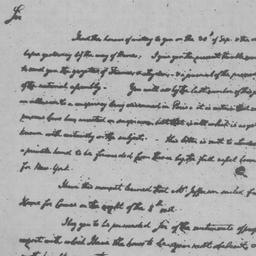 Sir
I had the honor of writing to you on the 20th of Sep. & the
before yesterday by the way of France. I give you the present trouble
to send you the gazettes of France & Leyden, & a journal of the
of the national assembly. You will see by the last number of this
an allusion to a conspiracy being discovered in Paris. it is certain that
persons have been arrested on suspicion but that is all which is as yet
known with certainty on the subject. this letter is sent to
a private hand to be forwarded from Havre by the first vessel
for New-York.
I have this moment learned that Mr. Jefferson sailed from
Havre for Cowes on the night of the 8th inst.
I beg you to be persuaded Sir of the sentiments of
respect with which I have the honor to be